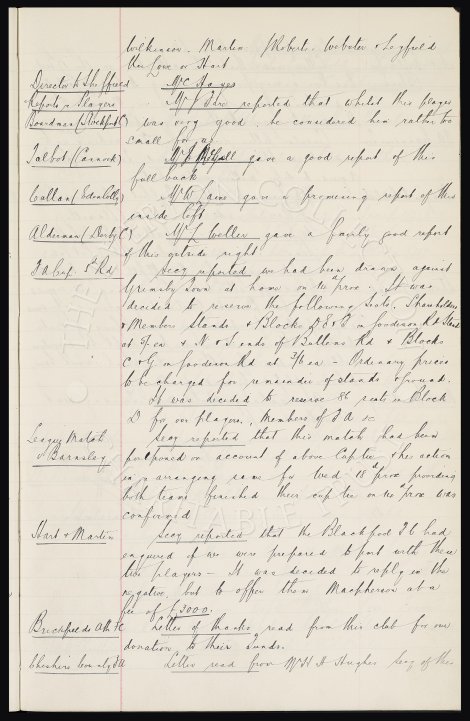 Wilkinson, Martin, Roberts, Webster & Loyfield
Director to Sheffield Mr C Hayes
Reports re Players Mr J Fare reported that whilst this player
Boardman (Stockport C) was very good, he considered him rather too
small for us
Talbot (Cannock) Mr J gave a good report of this
full back
Callan (Eden Colly) Mr W gave a promising report of this
inside left
Alderman (Derby C) Mr L gave a fairly good report
of this outside right
F A Cup 5th Rd Secy reported we had been drawn against
Grimsby Town at home on the prox. It was
decided to reserve the following seats, Shareholders
& Members Stands & Blocks D E & F in Goodison Rd Stand
at 5/- ea & N & S ends of Bullens Rd & Blocks
C & G in Goodison Rd at 3/6 ea - Ordinary prices
to be charged for remainder of stands & ground.
It was decided to reserve 86 seats in Block
D for our players, Members of F A &c
League Match Secy reported that this match had been
v Barnsley postponed on account of above Cup tie & his action
in re-arranging same for Wed. 18th prox providing
both teams finished their cup tie on the prox was
confirmed
Hart & Martin Secy reported that the Blackpool F C had
enquired if we were prepared to part with these
two players - It was decided to reply in the
negative, but to offer them Macpherson at a
fee of £3000.
Birchfields Ath FC Letter of thanks read from this club for our
donation to their funds.
Cheshire County F A Letter read from Mr H H Hughes Secy of this